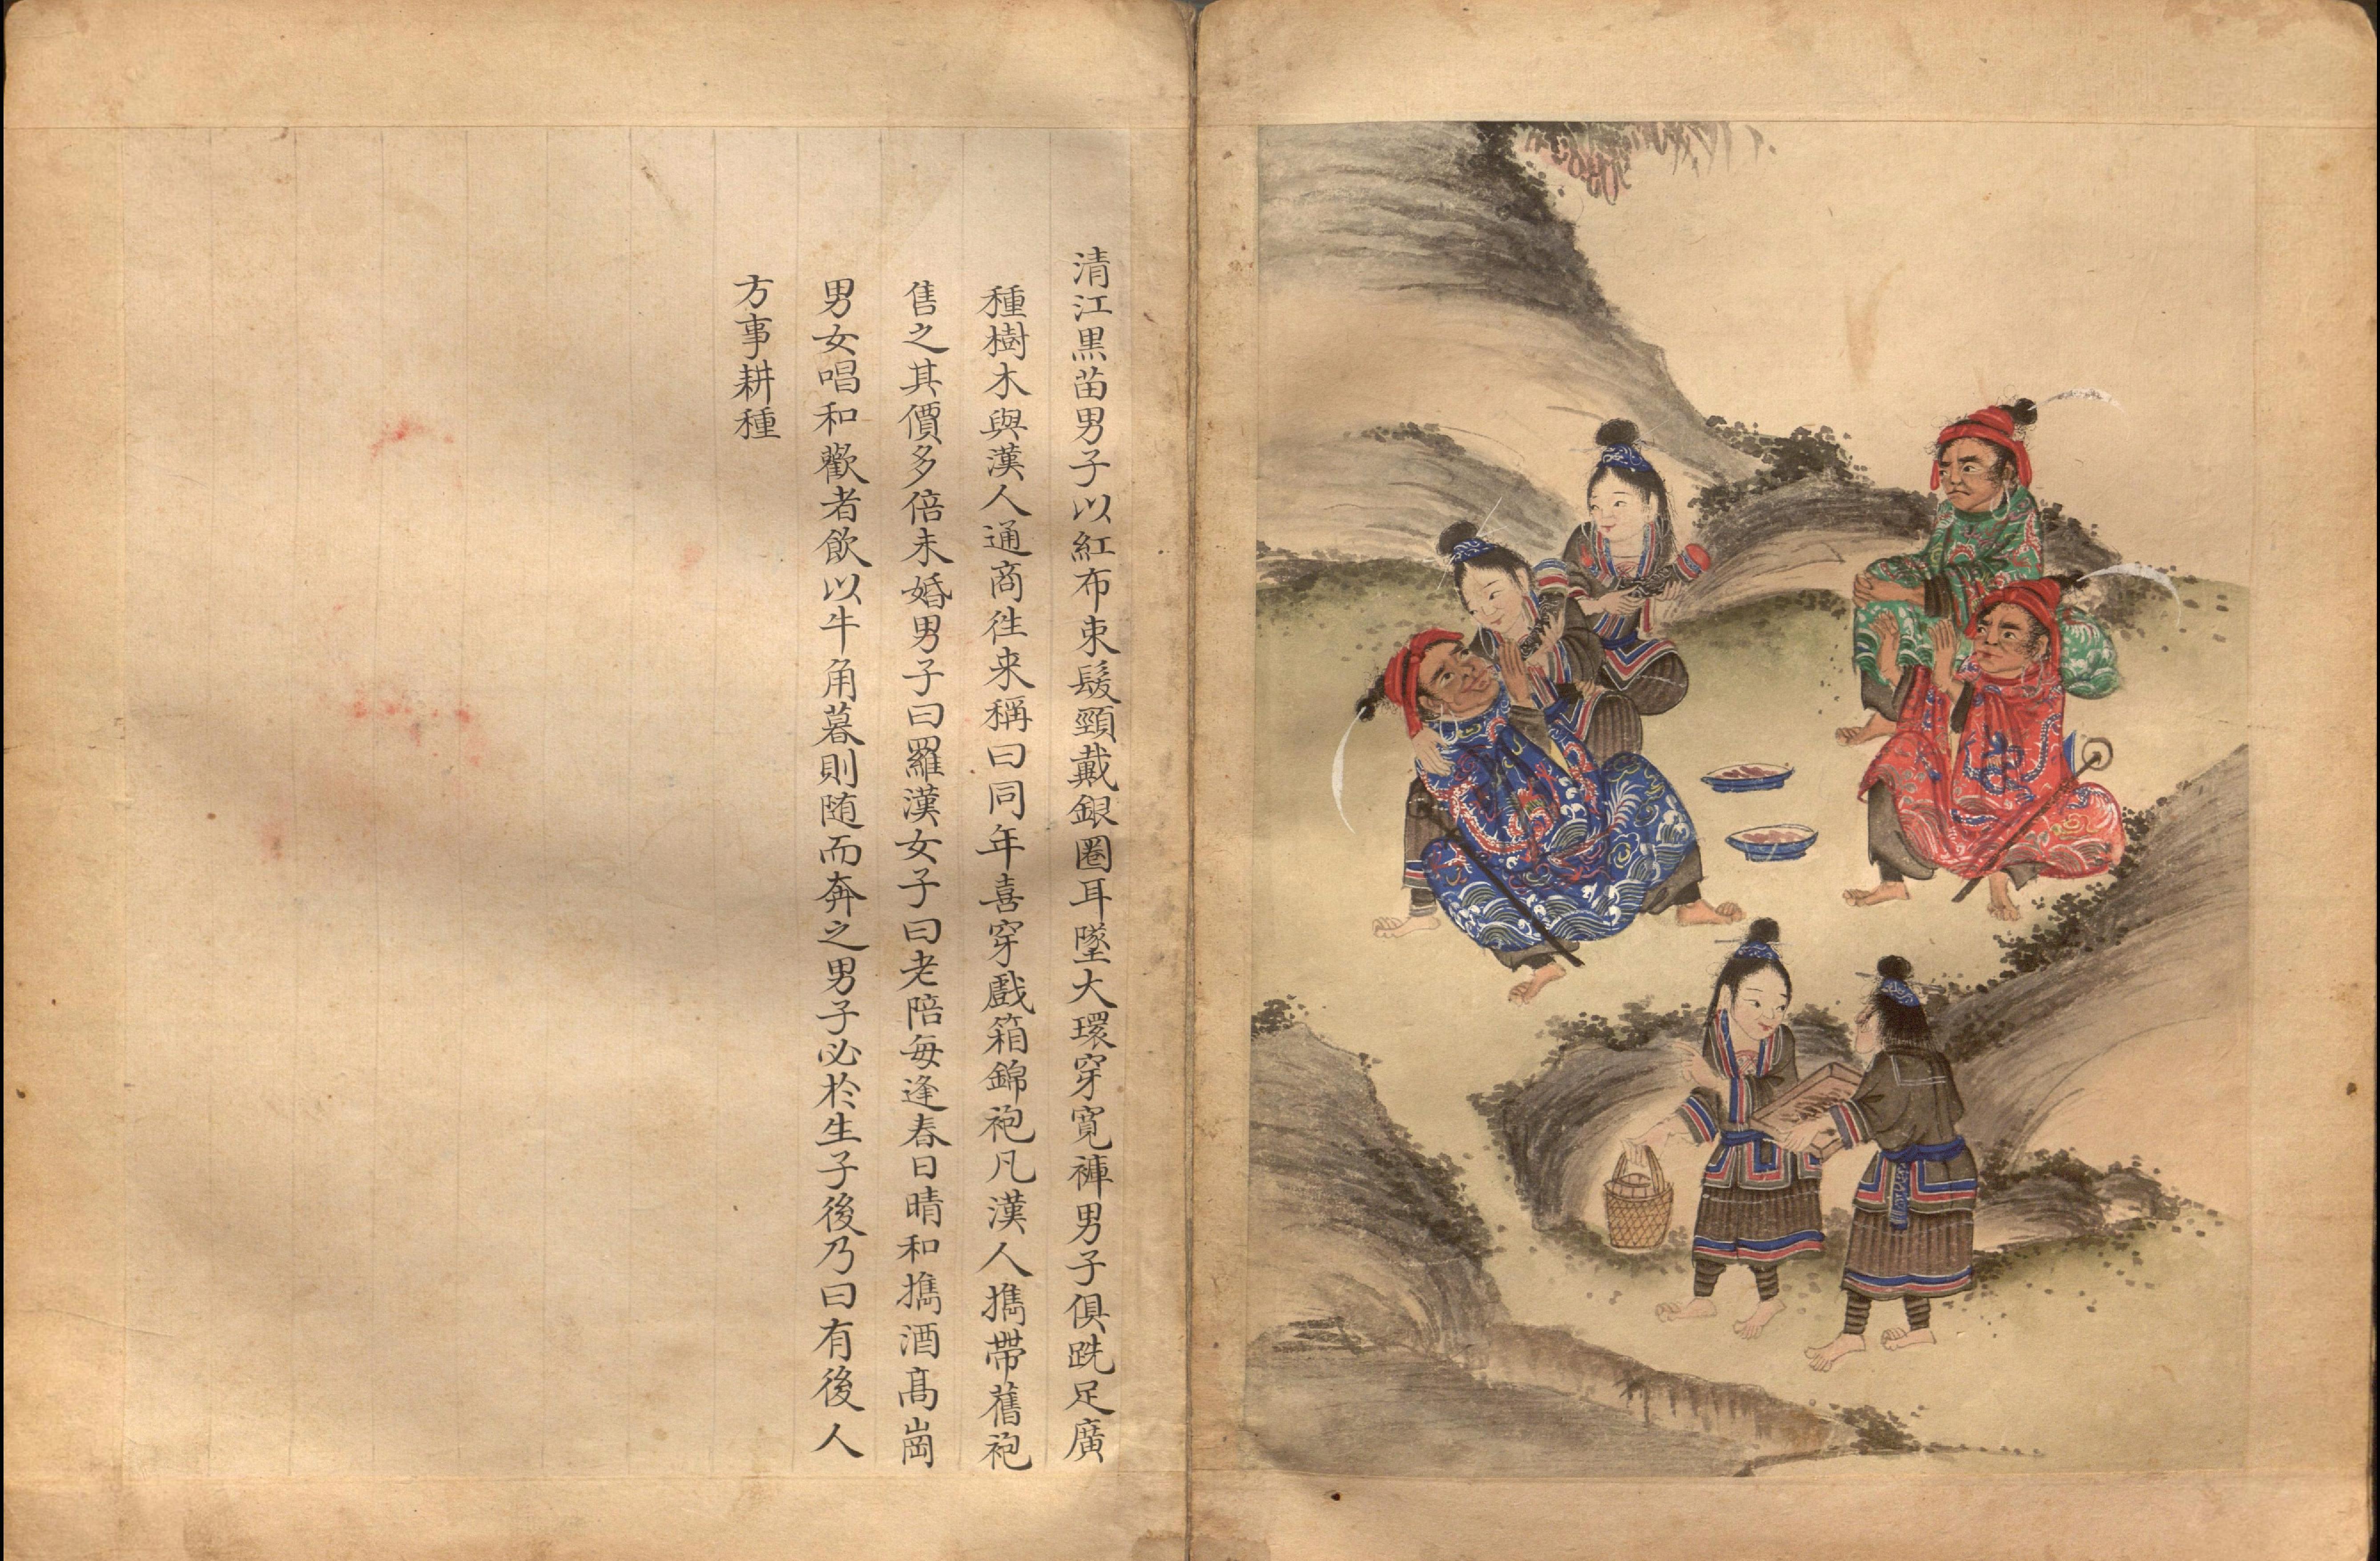 清江黒苗男子以紅布束髮頸戴銀圈耳墜大環穿寬褲男子俱跣足廣
種樹木與漢人通商徃来稱曰同年喜穿戲箱錦袍凡漢人擕帶舊袍
售之其價多倍未婚男子曰羅漢女子曰老陪每逢春日晴和擕酒髙崗
男女唱和歡者飲以牛角暮則随而奔之男子必於生子後乃曰有後人
方事耕種